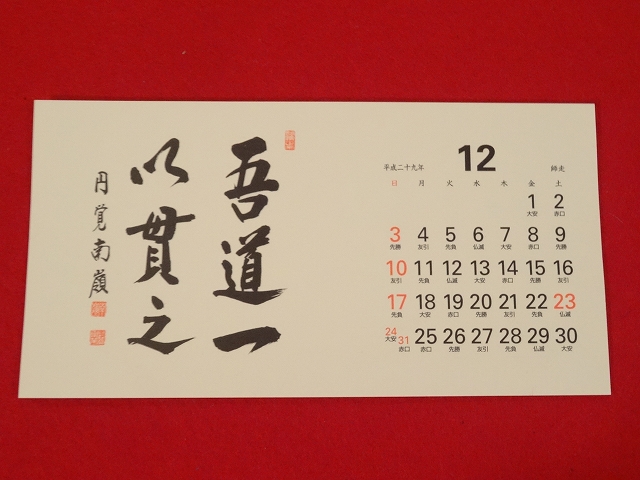 吾道一
以貫之
円覚南嶺
平成二十九年 12 師走
日 月 火 水 木 金 土
1 2
大安 赤口
3 4 5 6 7 8 9
先勝 友引 先負 仏滅 大安 赤口 先勝
10 11 12 13 14 15 16
友引 先負 仏滅 大安 赤口 先勝 友引
17 18 19 20 21 22 23
先負 大安 赤口 先勝 友引 先負 仏滅
24 31 25 26 27 28 29 30
大安 赤口 赤口 先勝 友引 先負 仏滅 大安